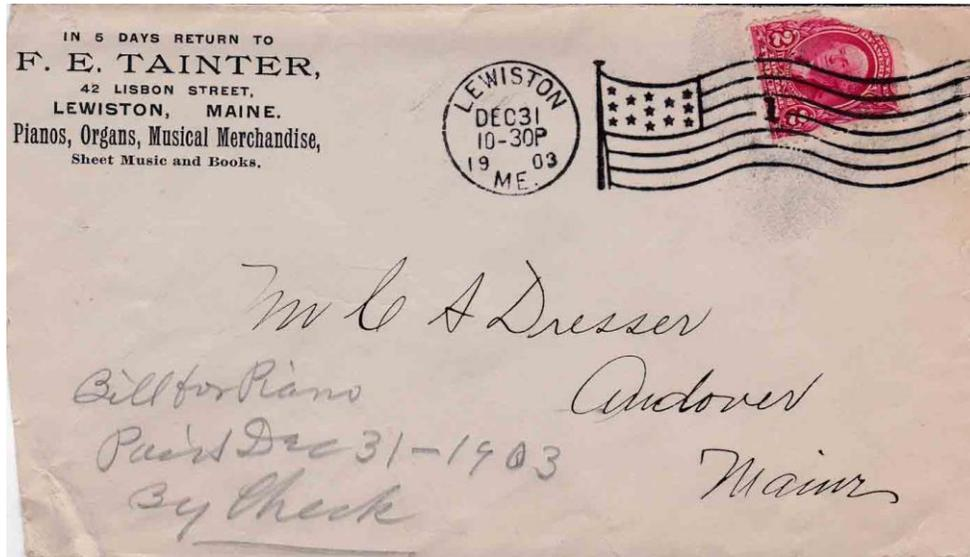 IN 5 DAYS RETURN TO
F. E. TAINTER,
42 LISBON STREET,
LEWISTON, MAINE.
Pianos, Organs, Musical Merchandise,
Sheet Music and Books.
LEWISTON
DEC 31
10-30P
19 03
ME.
1
2 2
Mr C A Dresser
Andover
Maine
Bill for Piano
Paid Dec 31-1903
By Check